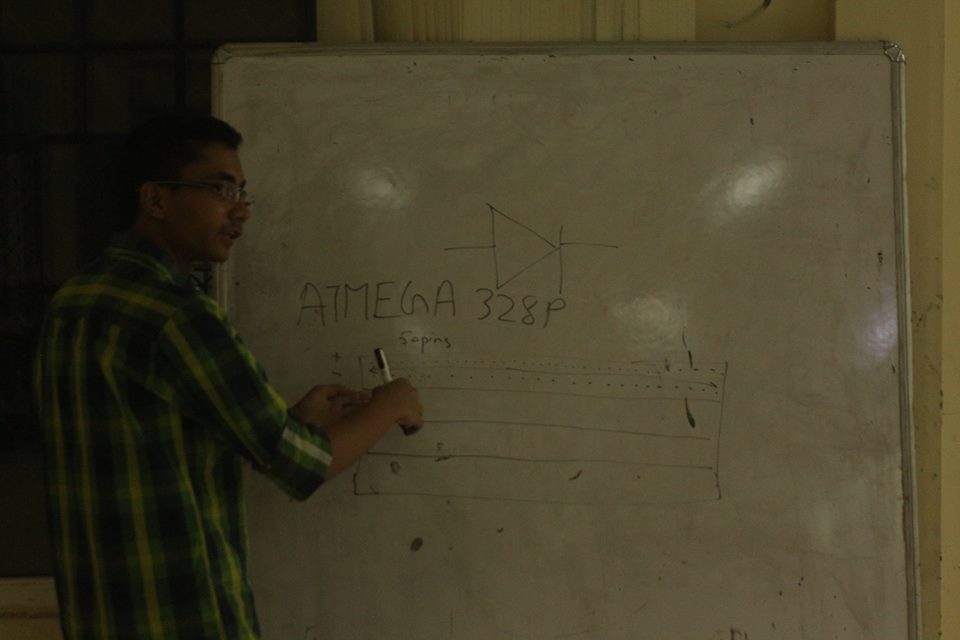 ATMEGA 328P
50pins
+
-